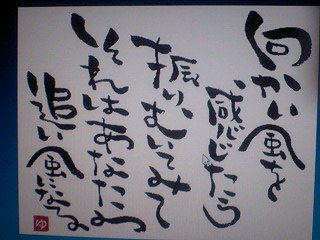 向かい風を
感じたら
振りむいてみて
それはあなたの
追い風になる
ゆ